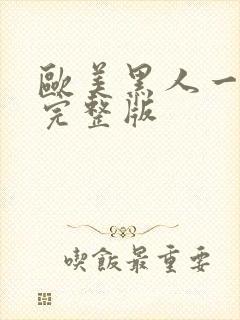 歐美黑人一
完整版
喫飯最重要